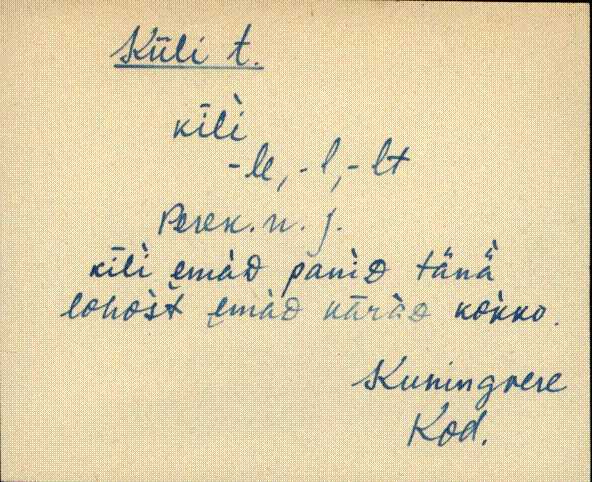 Küli t.
kīlì
-le, -l, -lt
Perek. n. j.
kīlì emàD panìD tänä̀
lohòšt emàD kāràD kòkko.
Kuningvere
Kod.